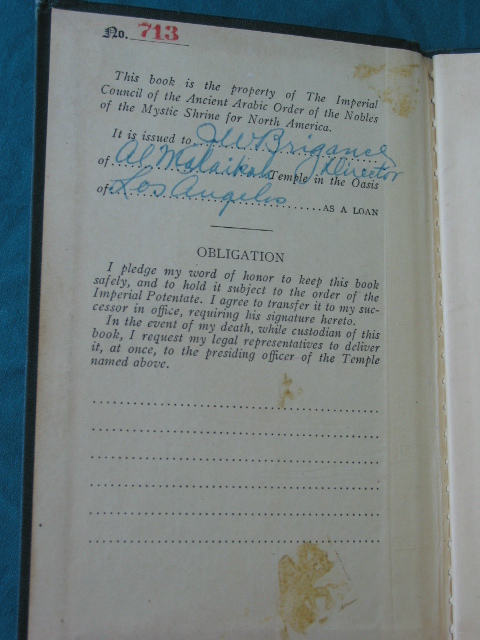 No. 713
This book is the property of The Imperial
Council of the Ancient Arabic Order of the Nobles
of the Mystic Shrine for North America.
It is issued to Brigance
Director
of Al Malaikah Temple in the Oasis
of Los Angeles AS A LOAN
OBLIGATION
I pledge my word of honor to keep this book
safely, and to hold it subject to the order of the
Imperial Potentate. I agree to transfer it to my suc-
cessor in office, requiring his signature hereto.
In the event of my death, while custodian of this
book, I request my legal representatives to deliver
it, at once, to the presiding officer of the Temple
named above.